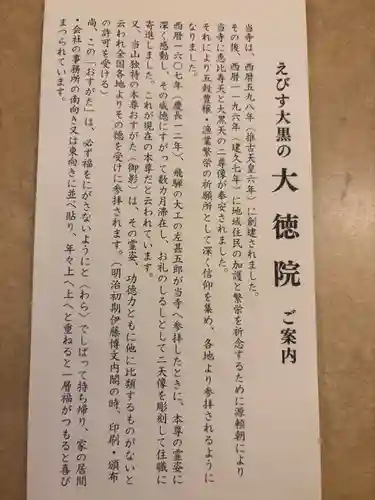 えびす大黒の 大徳院 ご案内
当寺は、西暦五九八年（推古天皇六年）に創建されました。
その後、西暦一一九六年（建久七年）に地域住民の加護と繁栄を祈念するために源頼朝により
当寺に恵比寿天と大黒天の二尊像が奉安されました。
それにより五穀豊穣・漁業繁栄の祈願所として深く信仰を集め、各地より参拝されるように
なりました。
西暦一六〇七年（慶長一二年）、飛騨の大工の左甚五郎が当寺へ参拝したときに、本尊の霊姿に
深く感動し、その威徳にすがって数カ月滞在し、お礼のしるしとして二天像を彫刻して住職に
寄進しました。これが現在の本尊だと云われています。
又、当山独特の本尊おすがた（御影）は、その霊姿、功徳力ともに他に比類するものがないと
云われ全国各地よりその徳を受けに参拝されます。（明治初期伊藤博文内閣の時、印刷・頒布
の許可を受ける）
尚、この「おすがた」は、必ず福をにがさないようにと（わら）でしばって持ち帰り、家の居間
・会社の事務所の南向き又は東向きに並べ貼り、年々上へ上へと重ねると一層福がつもると喜び
まつられています。